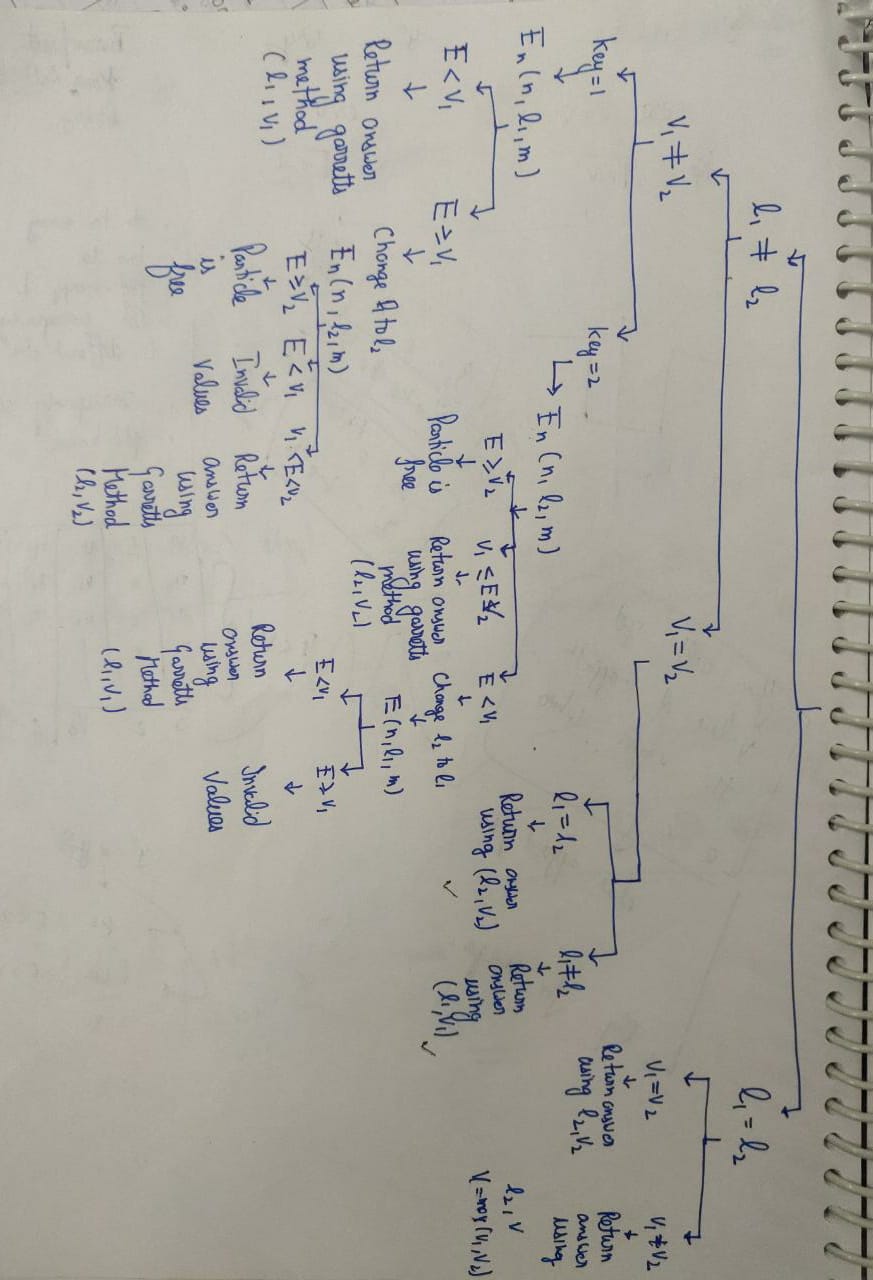 l₁ ≠ l₂
l₁ = l₂
V₁ ≠ V₂
V₁ = V₂
key=1
key=2
En(n, l₁, m)
E < V₁
E ≥ V₁
Return answer
using garretts
method
(l₁, V₁)
Change l1 to l₂
En(n, l₂, m)
E ≥ V₂
E < V₁
V₁ < E < V₂
Particle
is
free
Invalid
Values
Return
answer
using
Garretts
Method
(l₂, V₂)
En(n, l₂, m)
E ≥ V₂
V₁ ≤ E < V₂
E < V₁
Particle is
free
Return answer
using garretts
method
(l₂, V₂)
Change l₂ to l₁
E(n, l₁, m)
E < V₁
E ≥ V₁
Return
answer
using
Garretts
Method
(l₁, V₁)
Invalid
Values
l₁ = l₂
l₁ ≠ l₂
Return answer
using (l₂, V₂)
✓
Return
answer
using
(l₁, V₁)
✓
V₁ = V₂
V₁ ≠ V₂
Return answer
using l₂, V₂
Return
answer
using
l₂, V
V = max(V₁, V₂)